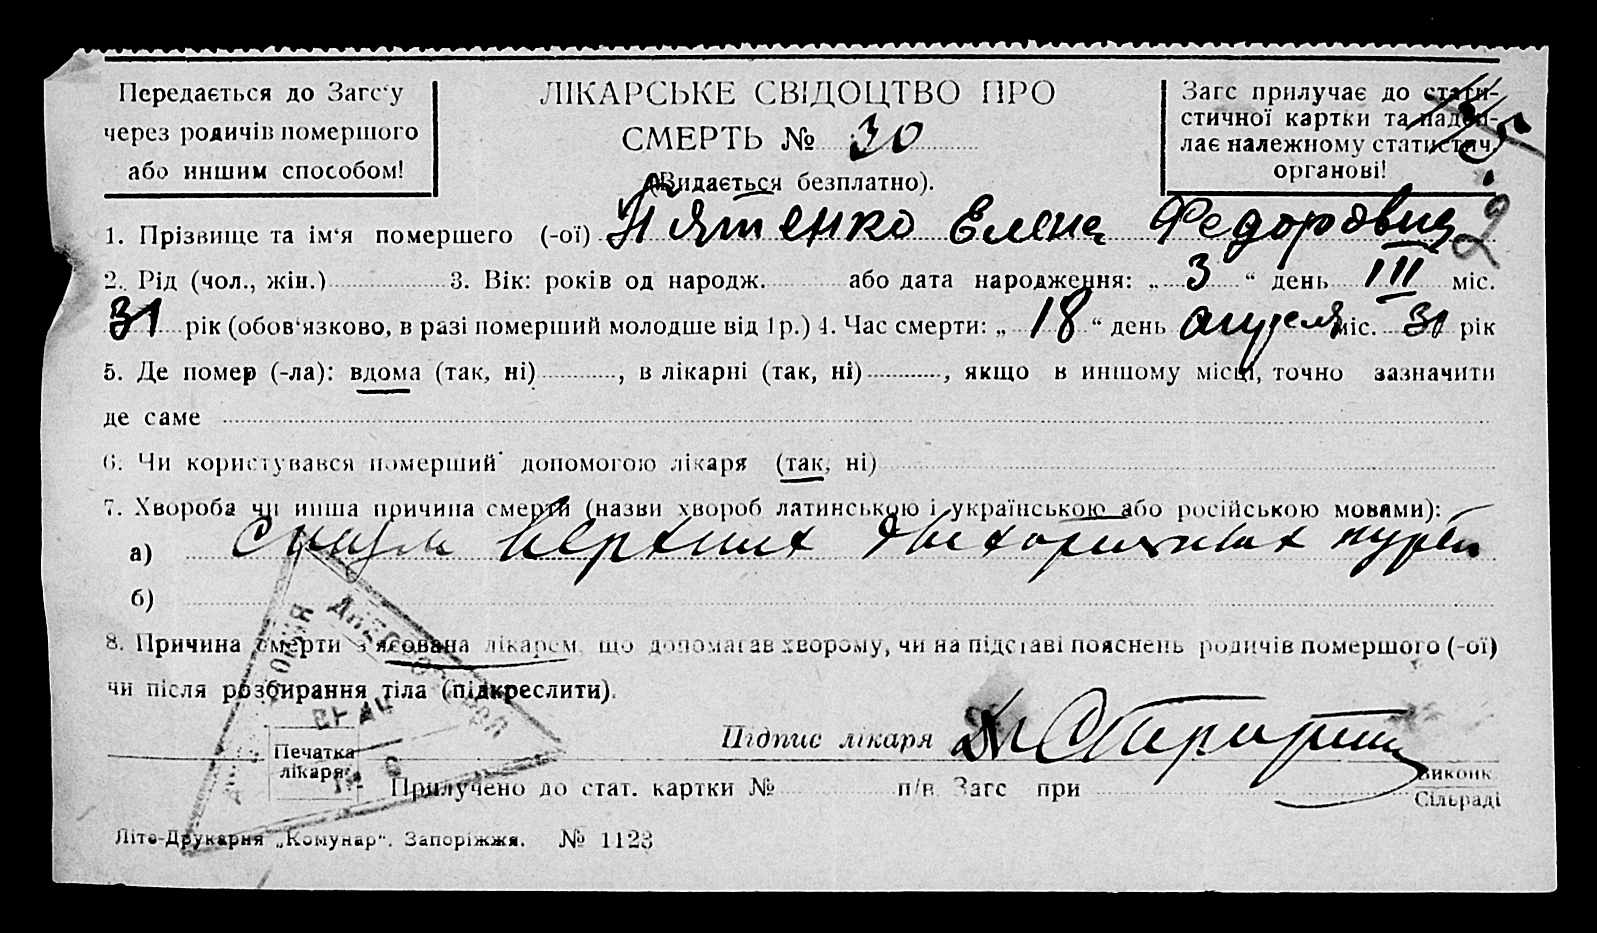 Передається до Загс‘у
через родичів помершого
або иншим способом!
ЛІКАРСЬКЕ СВІДОЦТВО ПРО
СМЕРТЬ № 30
(Видається безплатно).
Загс прилучає до стати-
стичної картки та надси-
лає належному статистич.
органові!
1. Прізвище та ім‘я помершего (-ої) Пятенко Елена Федоровна
2. Рід (чол., жін.) 3. Вік: років од народж. або дата народження: „ 3 “ день III міс.
31 рік (обов‘язково, в разі померший молодше від 1 р.) 4. Час смерти: „ 18 “ день апреля міс. 31 рік
5. Де помер (-ла): вдома (так, ні) , в лікарні (так, ні) , якщо в иншому місці, точно зазначити
де саме
6. Чи користувався померший допомогою лікаря (так, ні)
7. Хвороба чи инша причина смерти (назви хвороб латинською і українською або російською мовами):
а) верхних дыхательных путей
б)
8. Причина смерти з‘ясована лікарем, що допомагав хворому, чи на підставі пояснень родичів помершого (-ої)
чи після розбирання тіла (підкреслити).
Підпис лікаря
Печатка
лікаря
Прилучено до стат. картки № п/в Загс при
Виконк.
Сільраді
Літо-Друкарня „Комунар“. Запоріжжя. № 1123